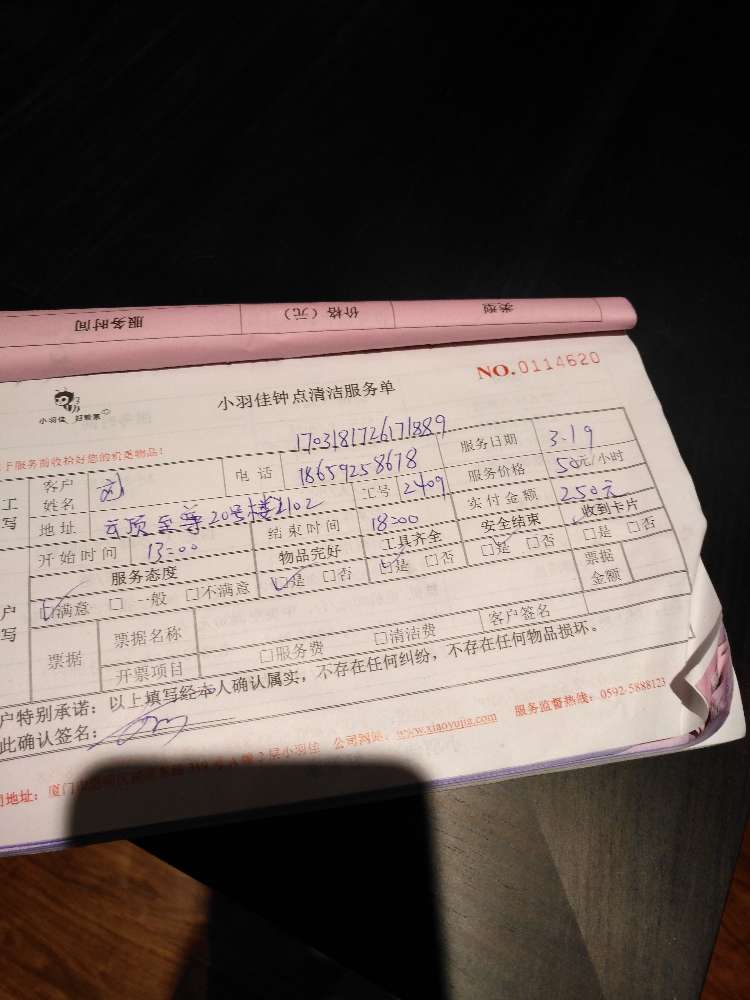 服务时间 价格（元） 类型
NO.0114620
小羽佳 好管家
小羽佳钟点清洁服务单
于服务前收拾好您的贵重物品！
1703181726171889
工 客户姓名 电话 18659258678 服务日期 3.19
写 地址 云顶至尊20号楼2102 工号 2409 服务价格 50元/小时
开始时间 13:00 结束时间 18:00 实付金额 250元
服务态度 物品完好 工具齐全 安全结束 收到卡片
户 □满意 □一般 □不满意 □是 □否 □是 □否 □是 □否 □是 □否
写 票据 票据名称 票据金额
开票项目 □服务费 □清洁费 客户签名
户特别承诺：以上填写经本人确认属实，不存在任何纠纷，不存在任何物品损坏。
此确认签名：
地址：厦门 2层小羽佳 公司网址：www.xiaoyujia.com 服务监督热线：0592-5888123